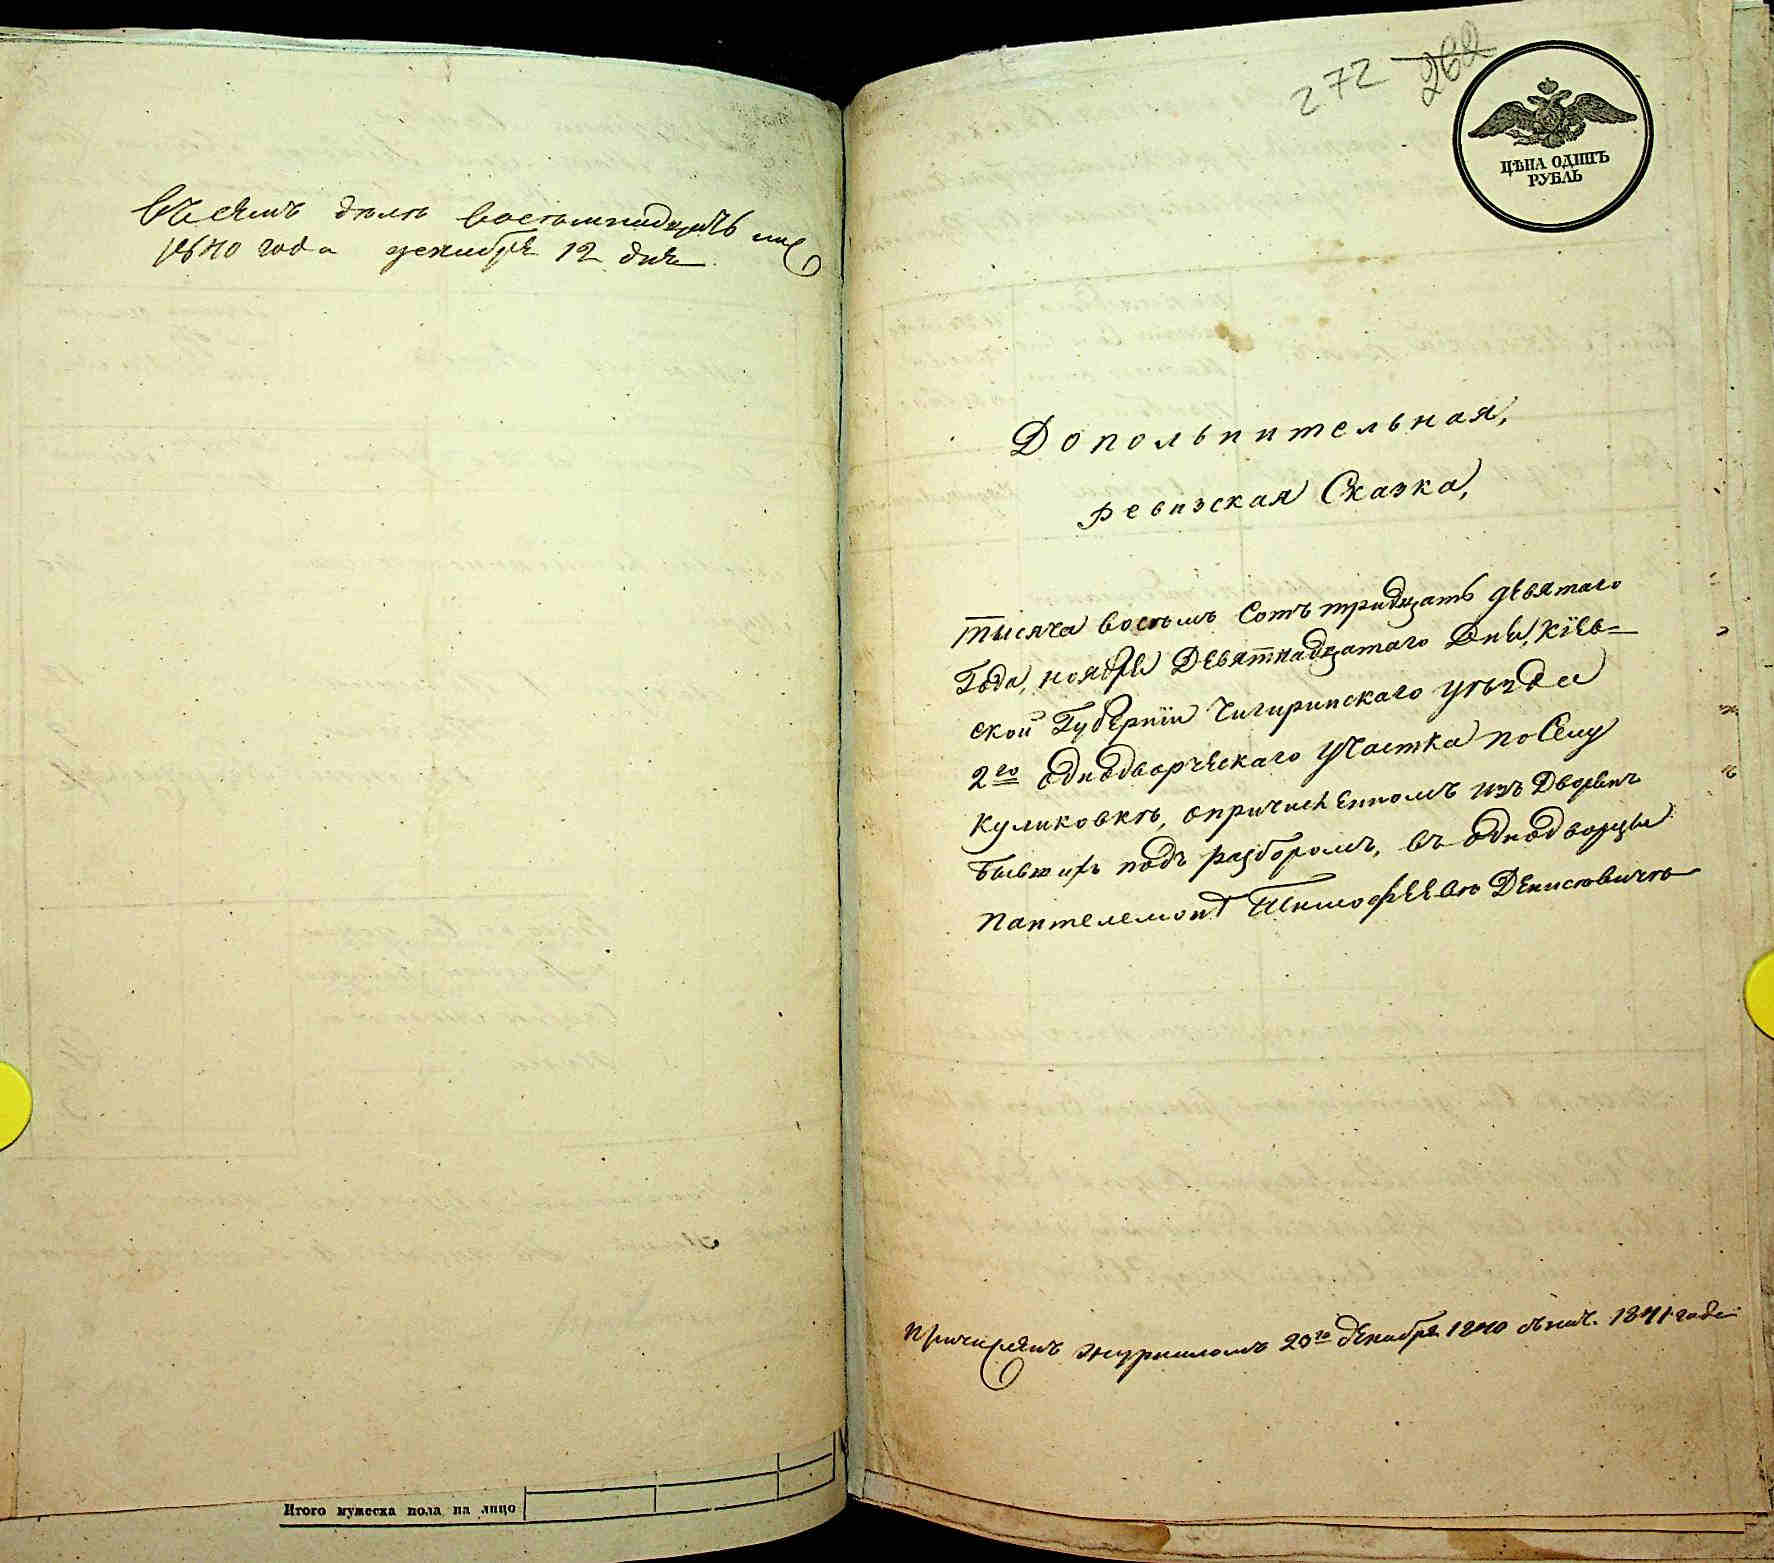 Въ семъ делѣ восемнадцать лис
1840 года декабря 12 дня
Итого мужеска пола на лицо
272 262
ЦѢНА ОДИНЪ
РУБЛЬ
Дополънительная,
ревизская Сказка,
тысяча восъмъ Сотъ тридцать девятаго
Года, ноября Девятнадцатаго Дня, Кіев=
ской Губерніи Чигиринскаго уѣзда
2го однодворческаго участка по Селу
Куликовкѣ, опричисленномъ изъ Дворянъ
бывшихъ подъ разборомъ, въ однодворцы
Пантелемонѣ Тимофеевѣ Денисовичѣ
Причисленъ журналомъ 20го декабря 1840 съ нач. 1841 года